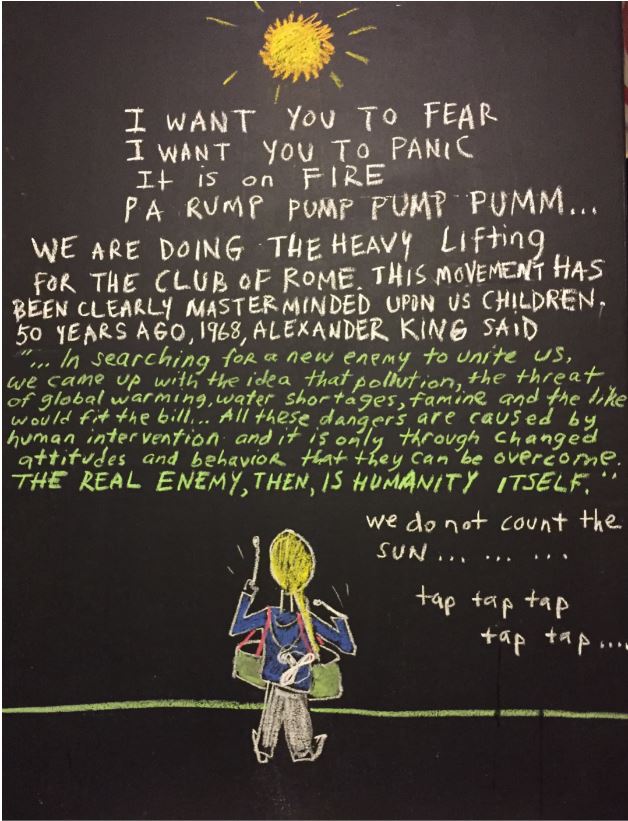 I WANT YOU TO FEAR
I WANT YOU TO PANIC
It is on FIRE
PA RUMP PUMP PUMP PUMM...
WE ARE DOING THE HEAVY Lifting
FOR THE CLUB OF ROME. THIS MOVEMENT HAS
BEEN CLEARLY MASTERMINDED UPON US CHILDREN.
50 YEARS AGO, 1968, ALEXANDER KING SAID
"... In searching for a new enemy to unite us,
we came up with the idea that pollution, the threat
of global warming, water shortages, famine and the like
would fit the bill... All these dangers are caused by
human intervention and it is only through changed
attitudes and behavior that they can be overcome.
THE REAL ENEMY, THEN, IS HUMANITY ITSELF."
we do not count the
SUN... ... ...
tap tap tap
tap tap ....